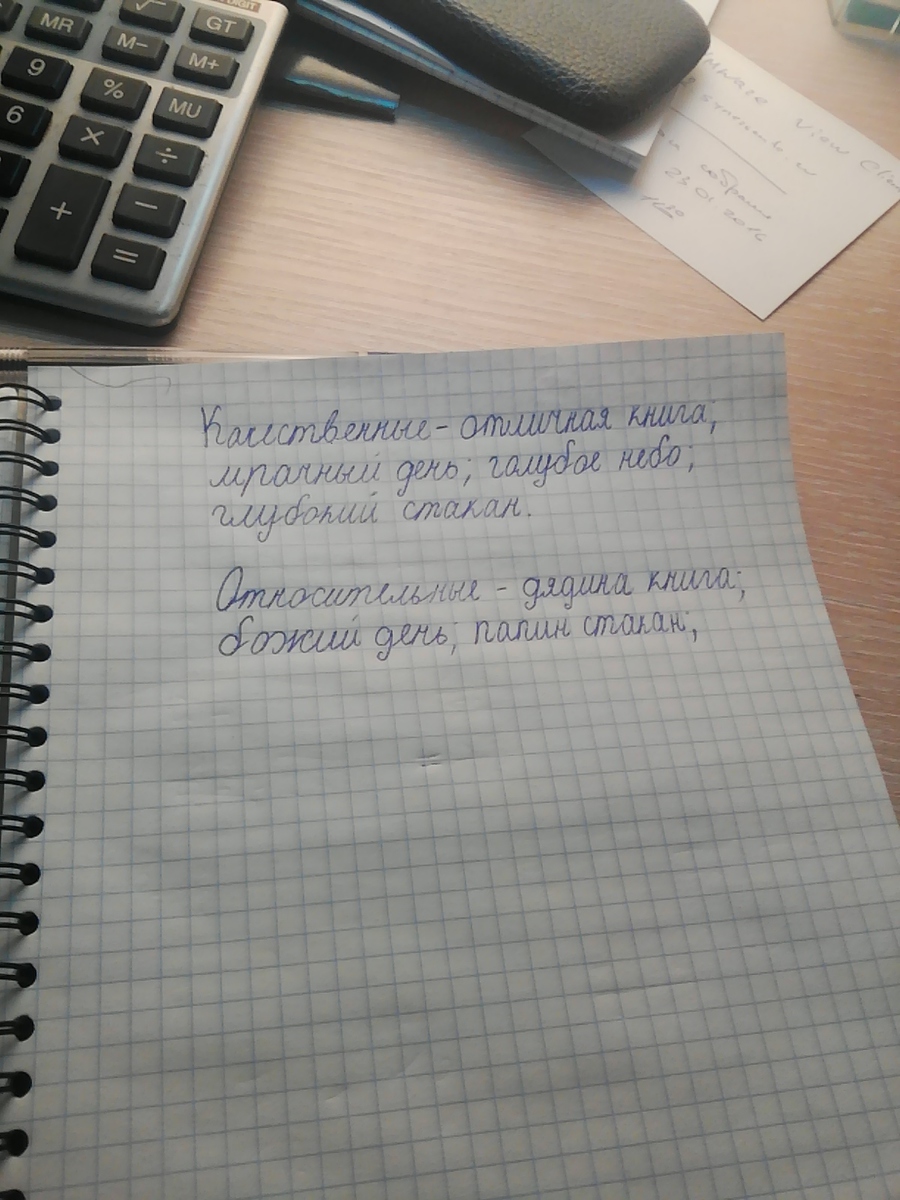 DIGIT
√ GT
MR M− M+
9 % MU
6 × ÷
+ −
=
View
собрание
23 01 2016
Качественные - отличная книга;
мрачный день; голубое небо;
глубокий стакан.
Относительные - дядина книга;
божий день; папин стакан;